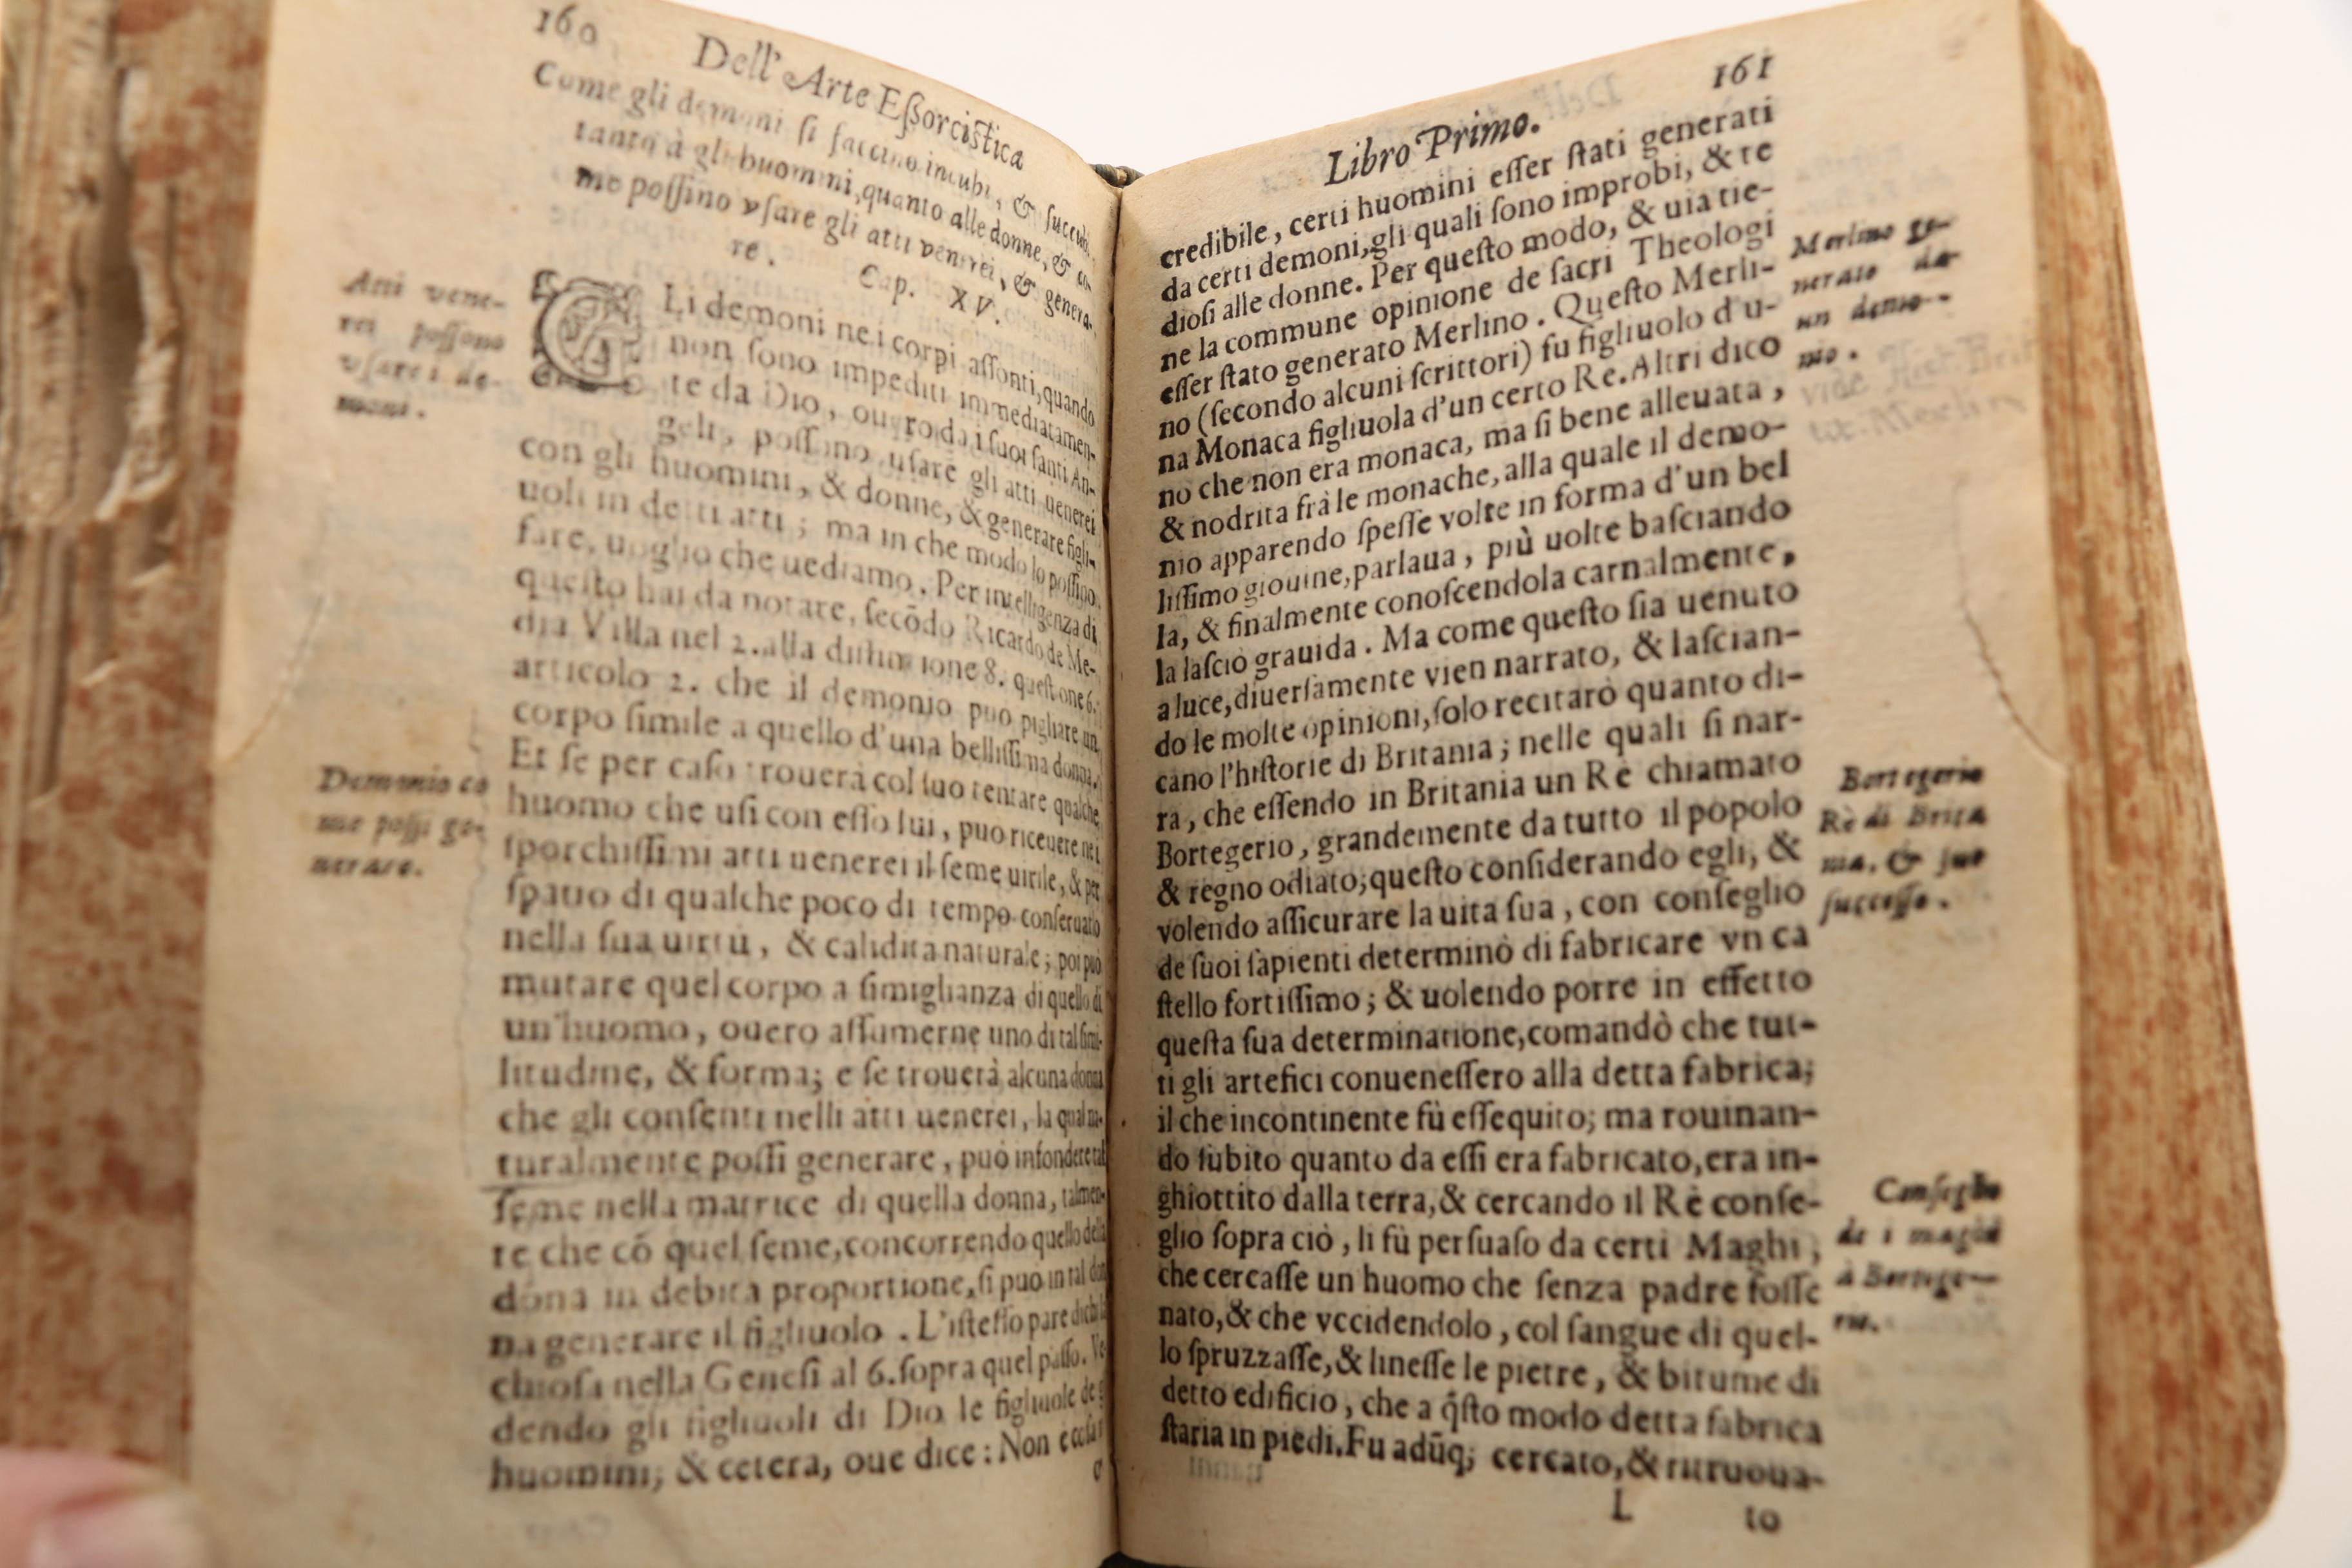 160
Dell' Arte Eſſorcistica
Come gli demoni ſi faccino incubi, & ſuccubi,
tanto à gli huomini, quanto alle donne, & co-
me poſſino vſare gli atti venerei, & genera-
re. Cap. XV.
GLi demoni ne i corpi aſſonti, quando
non ſono impediti immediatamen-
te da Dio, ouero da i ſuoi ſanti An-
geli, poſſano uſare gli atti uenerei
con gli huomini, & donne, & generare figli-
uoli in detti atti; ma in che modo lo poſſino
fare, uoglio che uediamo. Per intelligenza di
queſto hai da notare, ſecōdo Ricardo de Me-
dia Villa nel 2. alla diſtintione 8. queſtione 6.
articolo 2. che il demonio può pigliare un
corpo ſimile a quello d'una belliſſima donna.
Et ſe per caſo trouerà col ſuo tentare qualche
huomo che uſi con eſſo lui, puo riceuere nei
ſporchiſſimi atti uenerei il ſeme uirile, & per
ſpatio di qualche poco di tempo conſeruarlo
nella ſua uirtù, & calidità naturale; poi può
mutare quel corpo a ſimiglianza di quello di
un'huomo, ouero aſſumerne uno di tal ſimi-
litudine, & forma; e ſe trouerà alcuna donna
che gli conſenti nelli atti uenerei, la qual na-
turalmente poſſi generare, può infondere tal
ſeme nella matrice di quella donna, talmen-
te che cō quel ſeme, concorrendo quello della
dōna in debita proportione, ſi può in tal don
na generare il figliuolo. L'iſteſſo pare dichi la
chioſa nella Geneſi al 6. ſopra quel paſſo. Ve
dendo gli figliuoli di Dio le figliuole de g
huomini, & cetera, oue dice: Non è coſa in
Atti vene-
rei poſſono
vſare i de-
moni.
Demonio co
me poſſi ge-
nerare.
161
Libro Primo.
credibile, certi huomini eſſer ſtati generati
da certi demoni, gli quali ſono improbi, & te
dioſi alle donne. Per queſto modo, & uia tie-
ne la commune opinione de ſacri Theologi
eſſer ſtato generato Merlino. Queſto Merli-
no (ſecondo alcuni ſcrittori) fu figliuolo d'u-
na Monaca figliuola d'un certo Re. Altri dico
no che non era monaca, ma ſi bene alleuata,
& nodrita frà le monache, alla quale il demo-
nio apparendo ſpeſſe volte in forma d'un bel
liſſimo giouine, parlaua, più uolte baſciando
la, & finalmente conoſcendola carnalmente,
la laſciò grauida. Ma come queſto ſia uenuto
a luce, diuerſamente vien narrato, & laſcian-
do le molte opinioni, ſolo recitarò quanto di-
cano l'hiſtorie di Britania; nelle quali ſi nar-
ra, che eſſendo in Britania un Rè chiamato
Bortegerio, grandemente da tutto il popolo
& regno odiato; queſto conſiderando egli, &
volendo aſſicurare la uita ſua, con conſeglio
de ſuoi ſapienti determinò di fabricare vn ca
ſtello fortiſſimo; & uolendo porre in effetto
queſta ſua determinatione, comandò che tut-
ti gli artefici conueneſſero alla detta fabrica;
il che incontinente fù eſſequito; ma rouinan-
do ſubito quanto da eſſi era fabricato, era in-
ghiottito dalla terra, & cercando il Rè conſe-
glio ſopra ciò, li fù perſuaſo da certi Maghi,
che cercaſſe un huomo che ſenza padre foſſe
nato, & che vccidendolo, col ſangue di quel-
lo ſpruzzaſſe, & lineſſe le pietre, & bitume di
detto edificio, che a q̃ſto modo detta fabrica
ſtaria in piedi. Fu adūq; cercato, & ritruoua-
L to
Merlino ge-
nerato da
un demo-
nio.
vide
Bortegerio
Rè di Brita
nia, & ſuo
ſucceſſo.
Conſeglio
de i maghi
à Bortege-
rio.